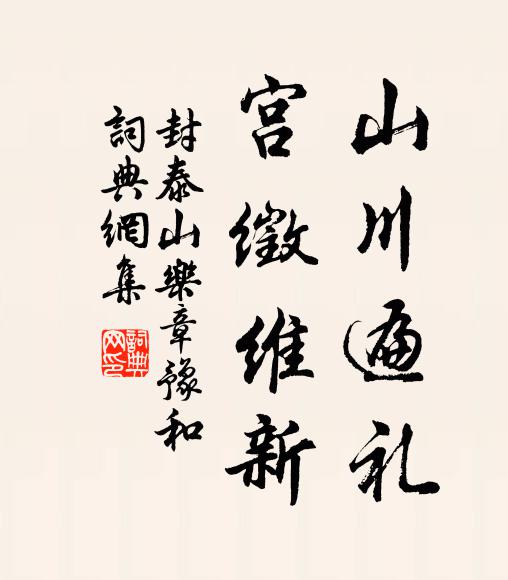 山川遍礼
宫徵维新
封泰山樂章豫和
詞典網集
詞典
网印